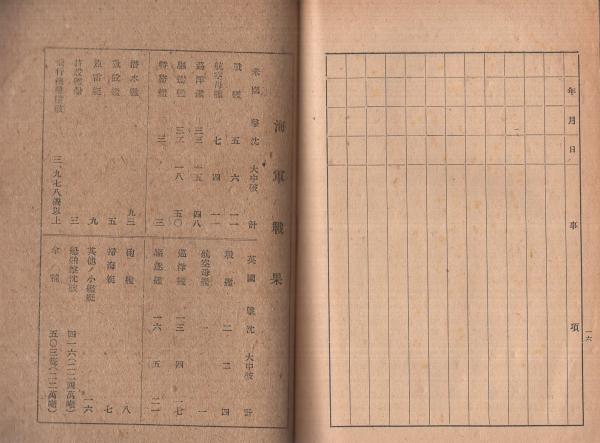 年月日
事項
一六
海軍戰果
米國 擊沈 大中破 計
戰艦 五 六 一一
航空母艦 七 四 一一
巡洋艦 三三 一五 四八
驅逐艦 三二 一八 五〇
特務艦 三 三
潜水艦 九三
五
魚雷艇 九
三
三、九七八機以上
英國 擊沈 大中破 計
戰艦 二 二 四
航空母艦 一 一
巡洋艦 一三 四 一七
驅逐艦 一六 五 二一
砲艦 八
掃海艇 七
其他ノ小艦艇 一六
船舶擊沈破 四一六(二二四萬噸)
拿捕 五〇三隻(一二萬噸)